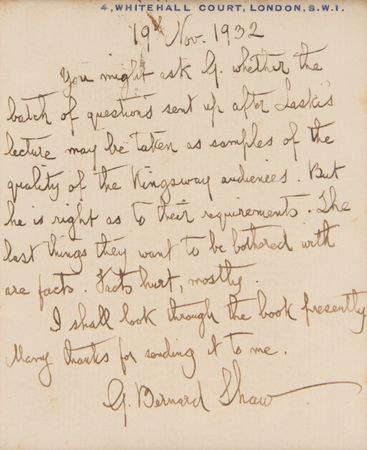 4, WHITEHALL COURT, LONDON, S.W.1.
19th Nov. 1932
You might ask G. whether the
batch of questions sent up after Laski's
lecture may be taken as samples of the
quality of the Kingsway audiences. But
he is right as to their requirements. The
last things they want to be bothered with
are facts. Facts hurt, mostly.
I shall look through the book presently
Many thanks for sending it to me.
G. Bernard Shaw